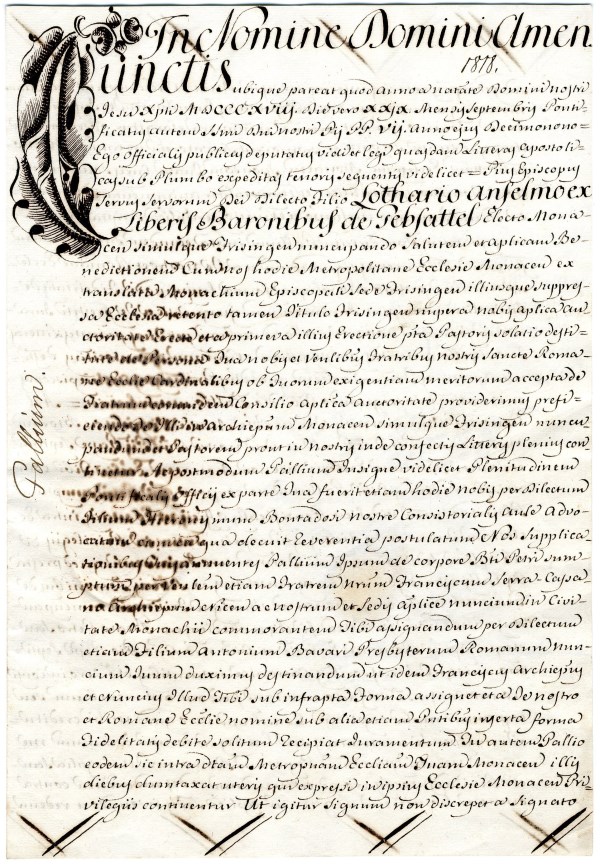 In Nomine Domini Amen.
1818.
Cunctis ubique pareat quod Anno a Nativitate Domini nostri
Jesu Xpti MDCCCXVIII. Die vero XXIX Mensis Septembris Ponti-
ficatus autem Ssmi Dni nostri Pij PP. VII. Anno ejus Decimonono =
Ego Officialis publicus deputatus vidi et legi quasdam Litteras Apostoli-
cas sub Plumbo expeditas tenoris sequentis videlicet = Pius Episcopus
Servus Servorum Dei Dilecto Filio Lothario Anselmo ex
Liberis Baronibus de Gebsattel Electo Mona-
cen simulque Frisingen nuncupando Salutem et Aplicam Be-
nedictionem Cum Nos hodie Metropolitane Ecclesie Monacen ex
translate Monachium Episcopali Sede Frisingen illiusque suppres-
sa Ecclesia retento tamen Titulo Frisingen nuper a nobis Aplica Au-
ctoritate Erecte et a primeva illius Erectione pta Pastoris solatio desti-
tute de Persona Tua nobis et Venlibus Fratribus nostris Sancte Roma-
ne Ecclie Cardinalibus ob Tuorum exigentiam meritorum accepta de
Fratrum eorumdem Consilio Aplica Auctoritate providerimus prefi-
ciendo Te illi in Archiepum Monacen simulque Frisingen nuncu-
pandum et Pastorem prout in nostris inde confectis Litteris plenius con-
tinetur Ac postmodum Pallium Insigne videlicet Plenitudinem
Pontificalis Officij ex parte Tua fuerit etiam hodie nobis per Dilectum
Filium Bontadosi Nostre Consistorialis Aule Advo-
catum ea qua decuit reverentia postulatum Nos Supplica-
tionibus Pallium Ipsum de corpore Bti Petri sum-
ptum per Venlem etiam Fratrem Nrum Franciscum Serra-Cassa-
no Archiepum Nicen ac Nostrum et Sedis Aplice Nuncium in Civi-
tate Monachii commorantem Tibi assignandum per Dilectum
etiam Filium Antonium Bavari Presbyterum Romanum Nun-
cium Tuum duximus destinandum ut idem Franciscus Archiepus
et Nuncius Illud Tibi sub infrapta Forma assignet et a Te Nostro
et Romane Ecclie nomine sub alia etiam Pntibus inserta forma
Fidelitatis debite solitum recipiat Juramentum Tu autem Pallio
eodem sic intra dtam Metropolitanam Eccliam Tuam Monacen illis
diebus dumtaxat uteris qui expressi in ipsius Ecclesie Monacen Pri-
vilegiis continentur Ut igitur Signum non discrepet a Signato
Pallium.